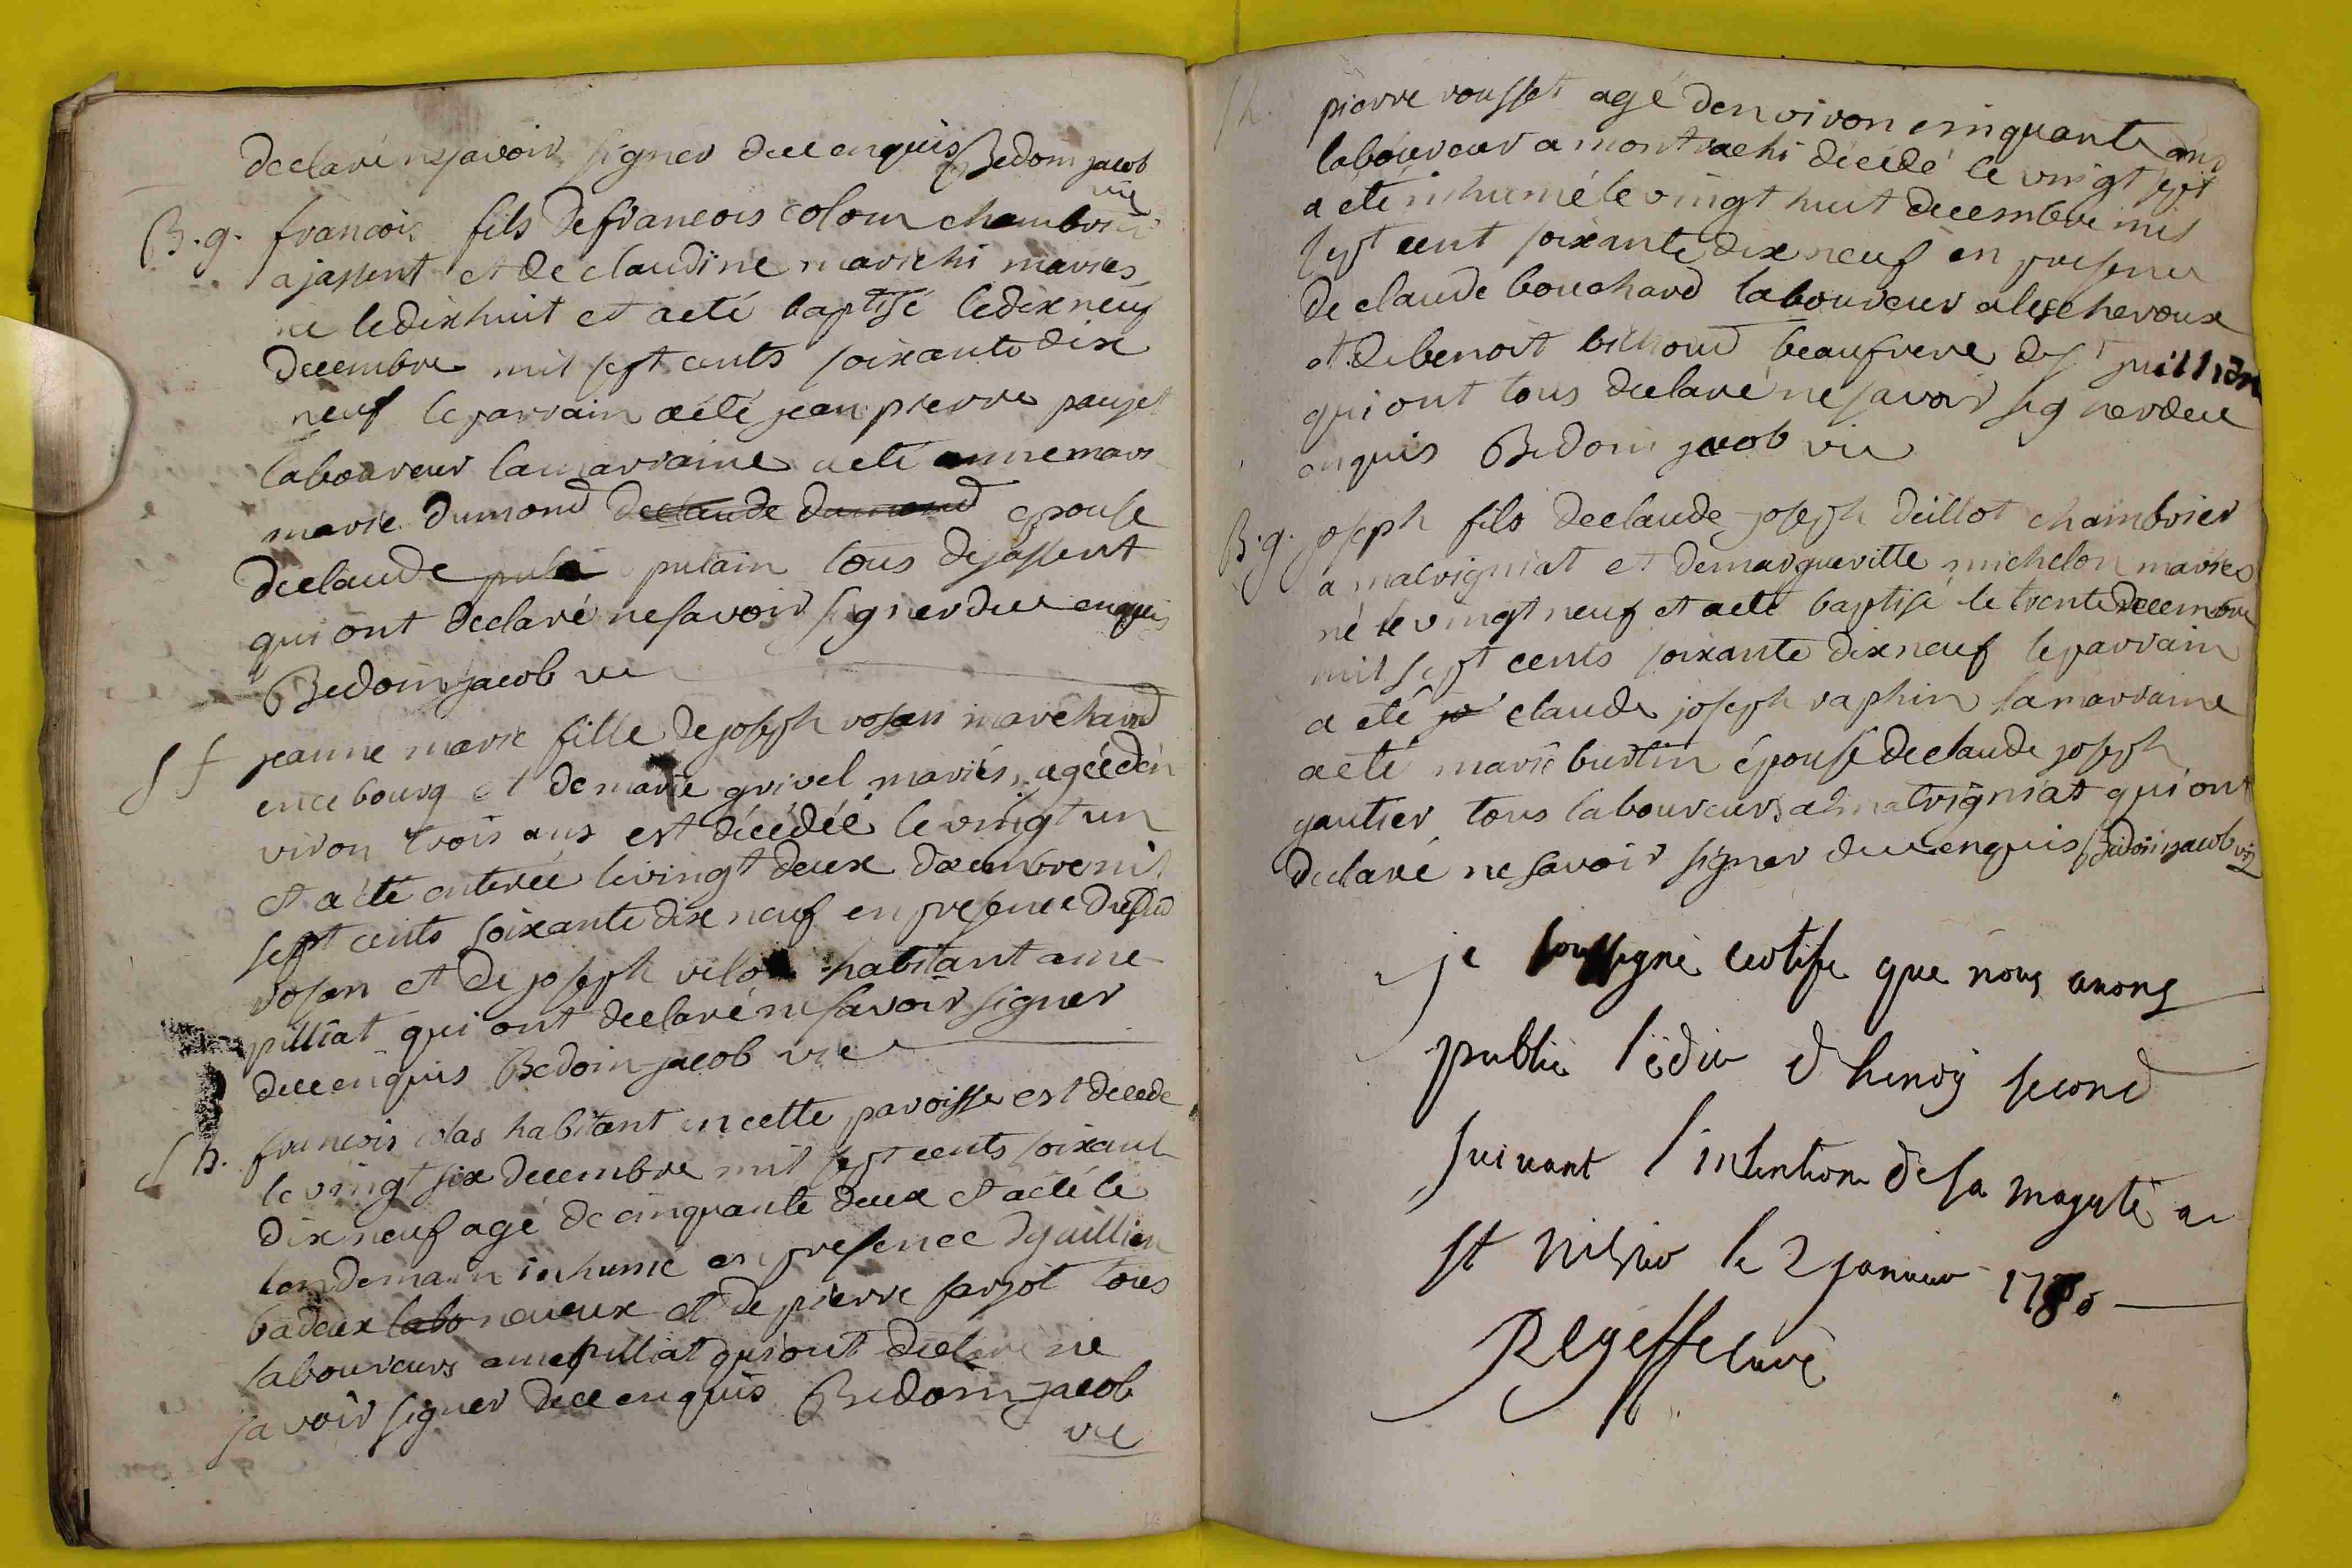 declaré ne savoir signer de ce enquis Bedoin jacob
vic
B.g. francois fils de francois colom chambrier
a jassent et de claudine marichi maries
né le dix huit et a eté baptisé le dix neuf
decembre mil sept cents soixante dix
neuf le parrain a été jean pierre pauget
laboureur la marraine a eté anne mari
marie dumond de claude dumond epouse
de claude putain tous de jassent
qui ont declaré ne savoir signer de ce enquis
Bedoin jacob vic
S f jeanne marie fille de joseph rosan marechand
en ce bourg et de marie grivel mariés, agéé d'en
viron trois ans est décédéé le vingt un
et a été enteréé le vingt deux decembre mil
sept cents soixante dix neuf en presence dudit
rosan et de joseph habitant a me
pilliat qui ont declaré ne savoir signer
de ce enquis Bedoin jacob vic
S h. francois colas habitant en cette paroisse est decede
le vingt six decembre mil sept cents soixant
dix neuf agé de cinquante deux et a été le
lendemain inhumé en presence de juillien
badoux labo neveux et de pierre farjot tous
laboureurs a mepilliat qui ont declaré ne
savoir signer de ce enquis Bedoin jacob
vic
S h. pierre rousset agé d'environ cinquante ans
laboureur a montrachi décédé le vingt sept
a été inhumé le vingt huit decembre mil
sept cent soixante dix neuf en presence
de claude bouchard laboureur a lescheroux
et de benoit beaufrere de juillien
qui ont tous declaré ne savoir signer de ce
enquis Bedoin jacob vic
B.g. joseph fils de claude joseph deillot chambrier
a malvigniat et de margueritte michelon maries
né le vingt neuf et a eté baptisé le trente decembre
mil sept cents soixante dix neuf le parrain
a été jo claude joseph raphin la marraine
a eté marie burtin épouse de claude joseph
gautier tous laboureurs a malvigniat qui ont
declaré ne savoir signer de ce enquis Bedoin jacob vic
je soussigné certifie que nous avons
publié l'édit d'henry second
suivant l'intention de sa majesté a
st nisier le 2 janvier 1780
Regeffe curé